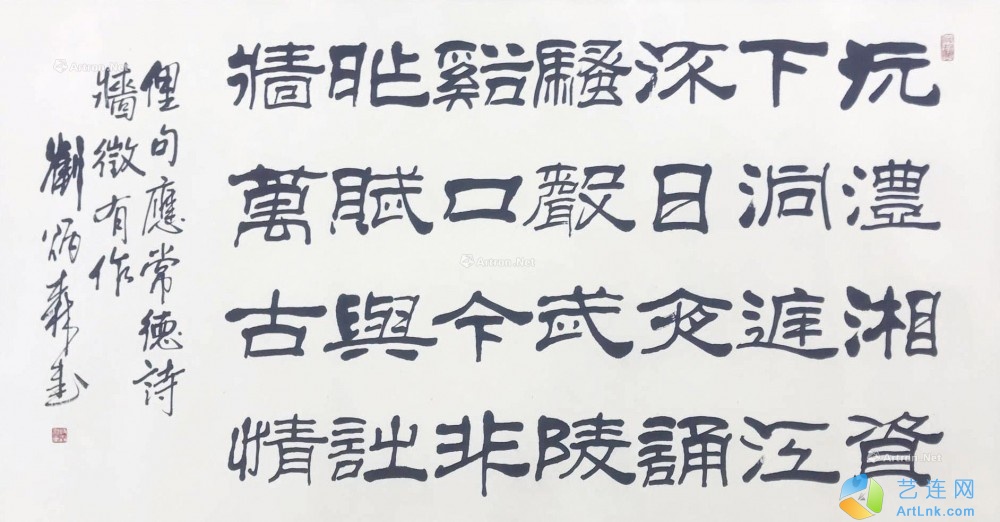 沅澧湘資
下洞庭江
流日夜誦
騷聲武陵
谿口今非
昨賦與詩
牆萬古情
俚句應常德詩
牆徵有作
劉炳森書
Artron.Net
Artron.Net
Artron.Net
艺连网
ArtLnk.com